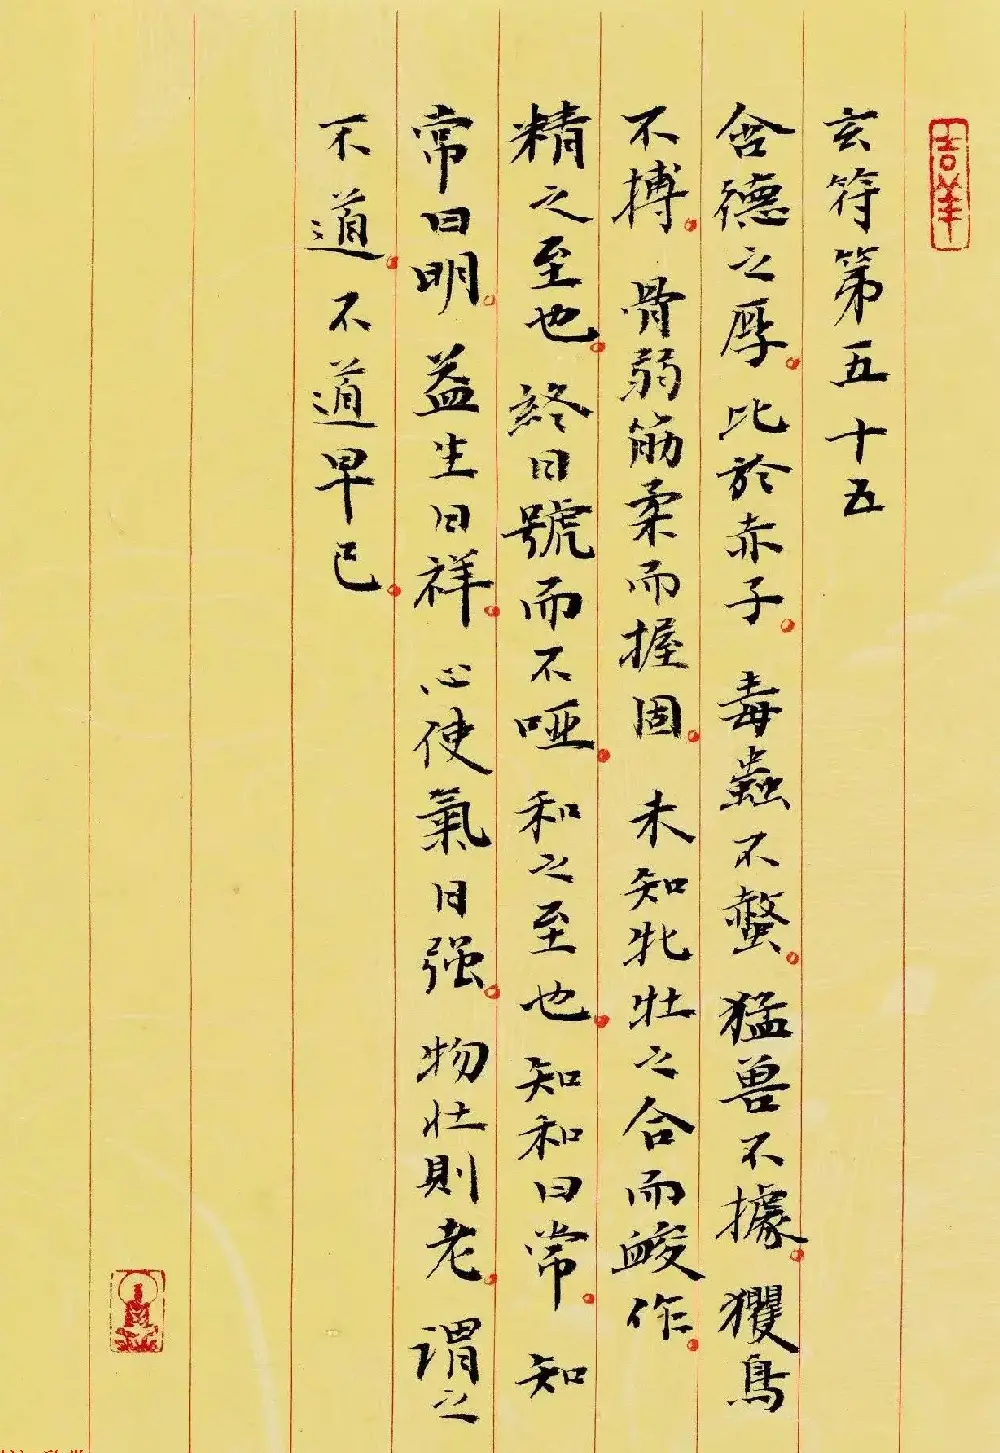 吉羊
玄符第五十五
含德之厚。比於赤子。毒蟲不螫。猛兽不據。玃鳥
不搏。骨弱筋柔而握固。未知牝牡之合而䘒作。
精之至也。終日號而不哑。和之至也。知和曰常。知
常曰明。益生曰祥。心使氣曰强。物壮則老。謂之
不道。不道早已。